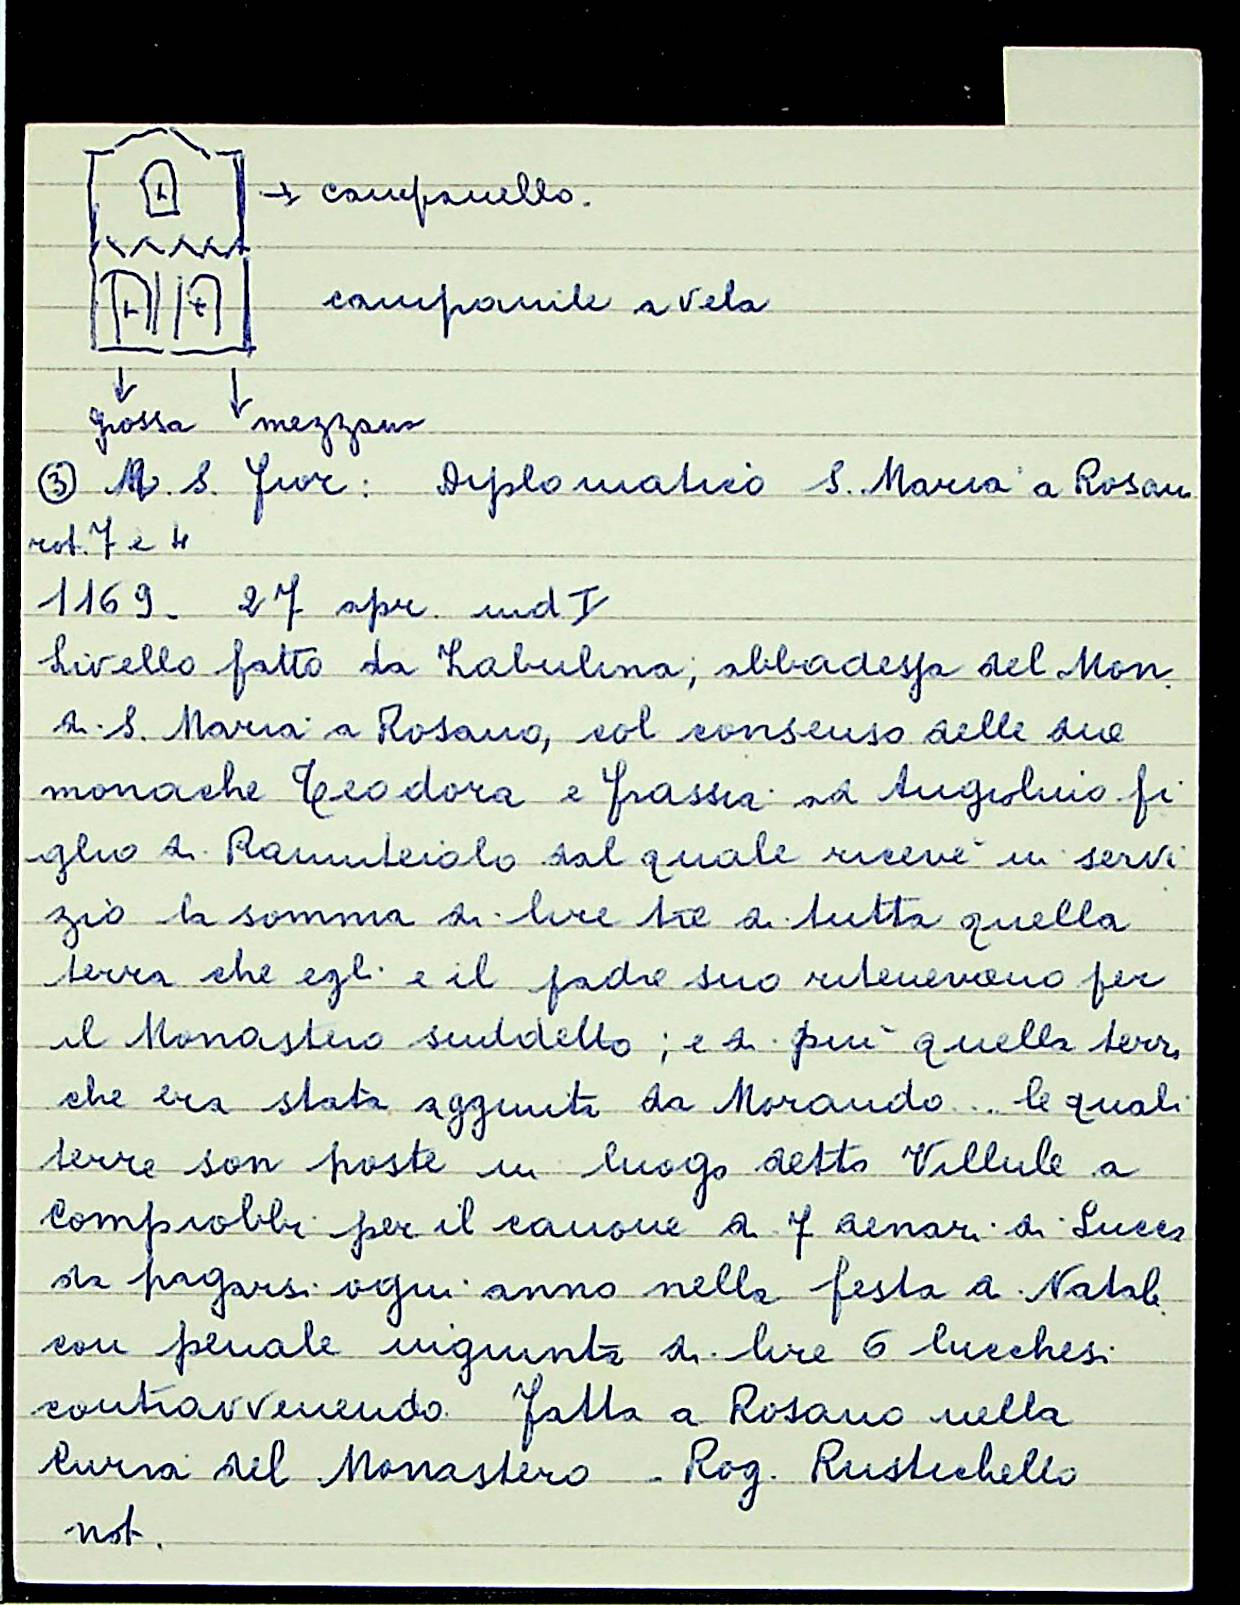 → campanello.
campanile a vela
grossa mezzana
③ A. S. Fior: Diplomatico S. Maria a Rosan
rot. 7 e 4
1169. 27 apr. ind I
Livello fatto da Labulina, abbadessa del Mon.
di S. Maria a Rosano, col consenso delle due
monache Teodora e Grassia ad Angiolino fi
glio di Ranuteiolo dal quale riceve in servi
zio la somma di lire tre di tutta quella
terra che egli e il padre suo ritenevano per
il Monastero suddetto; e di più quella terra
che era stata aggiunta da Morando... le quali
terre son poste in luogo detto Villule a
Compiobbi per il canone di 7 denari di Lucca
da pagarsi ogni anno nella festa di Natale
con penale ingiunta di lire 6 lucchesi
contravvenendo. Fatta a Rosano nella
Curia del Monastero - Rog. Rustichello
not.